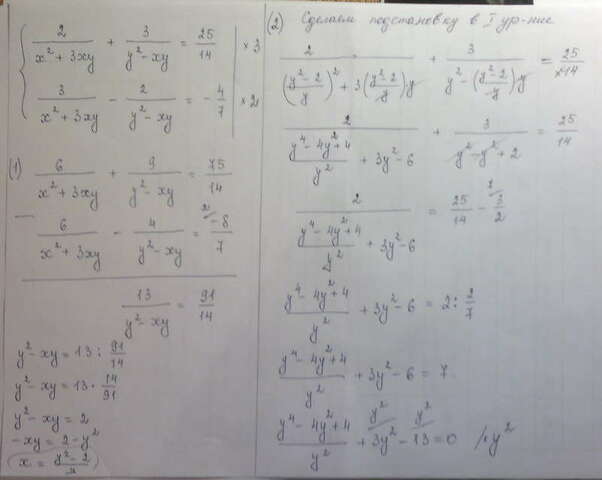 2/(x²+3xy) + 3/(y²-xy) = 25/14 | ×3
3/(x²+3xy) - 2/(y²-xy) = -4/7 | ×2
(1) 6/(x²+3xy) + 9/(y²-xy) = 75/14
- 6/(x²+3xy) - 4/(y²-xy) = -8/7
13/(y²-xy) = 91/14
y²-xy = 13 : 91/14
y²-xy = 13 · 14/91
y²-xy = 2
-xy = 2-y²
x = (y²-2)/y
(2) Сделаем подстановку в I ур-ние
2/(((y²-2)/y)² + 3((y²-2)/y)y) + 3/(y²-((y²-2)/y)y) = 25/14
2/((y⁴-4y²+4)/y² + 3y²-6) + 3/(y²-y²+2) = 25/14
2/((y⁴-4y²+4)/y² + 3y²-6) = 25/14 - 3/2
(y⁴-4y²+4)/y² + 3y²-6 = 2 : 2/7
(y⁴-4y²+4)/y² + 3y²-6 = 7
(y⁴-4y²+4)/y² + 3y² - 13 = 0 /×y²